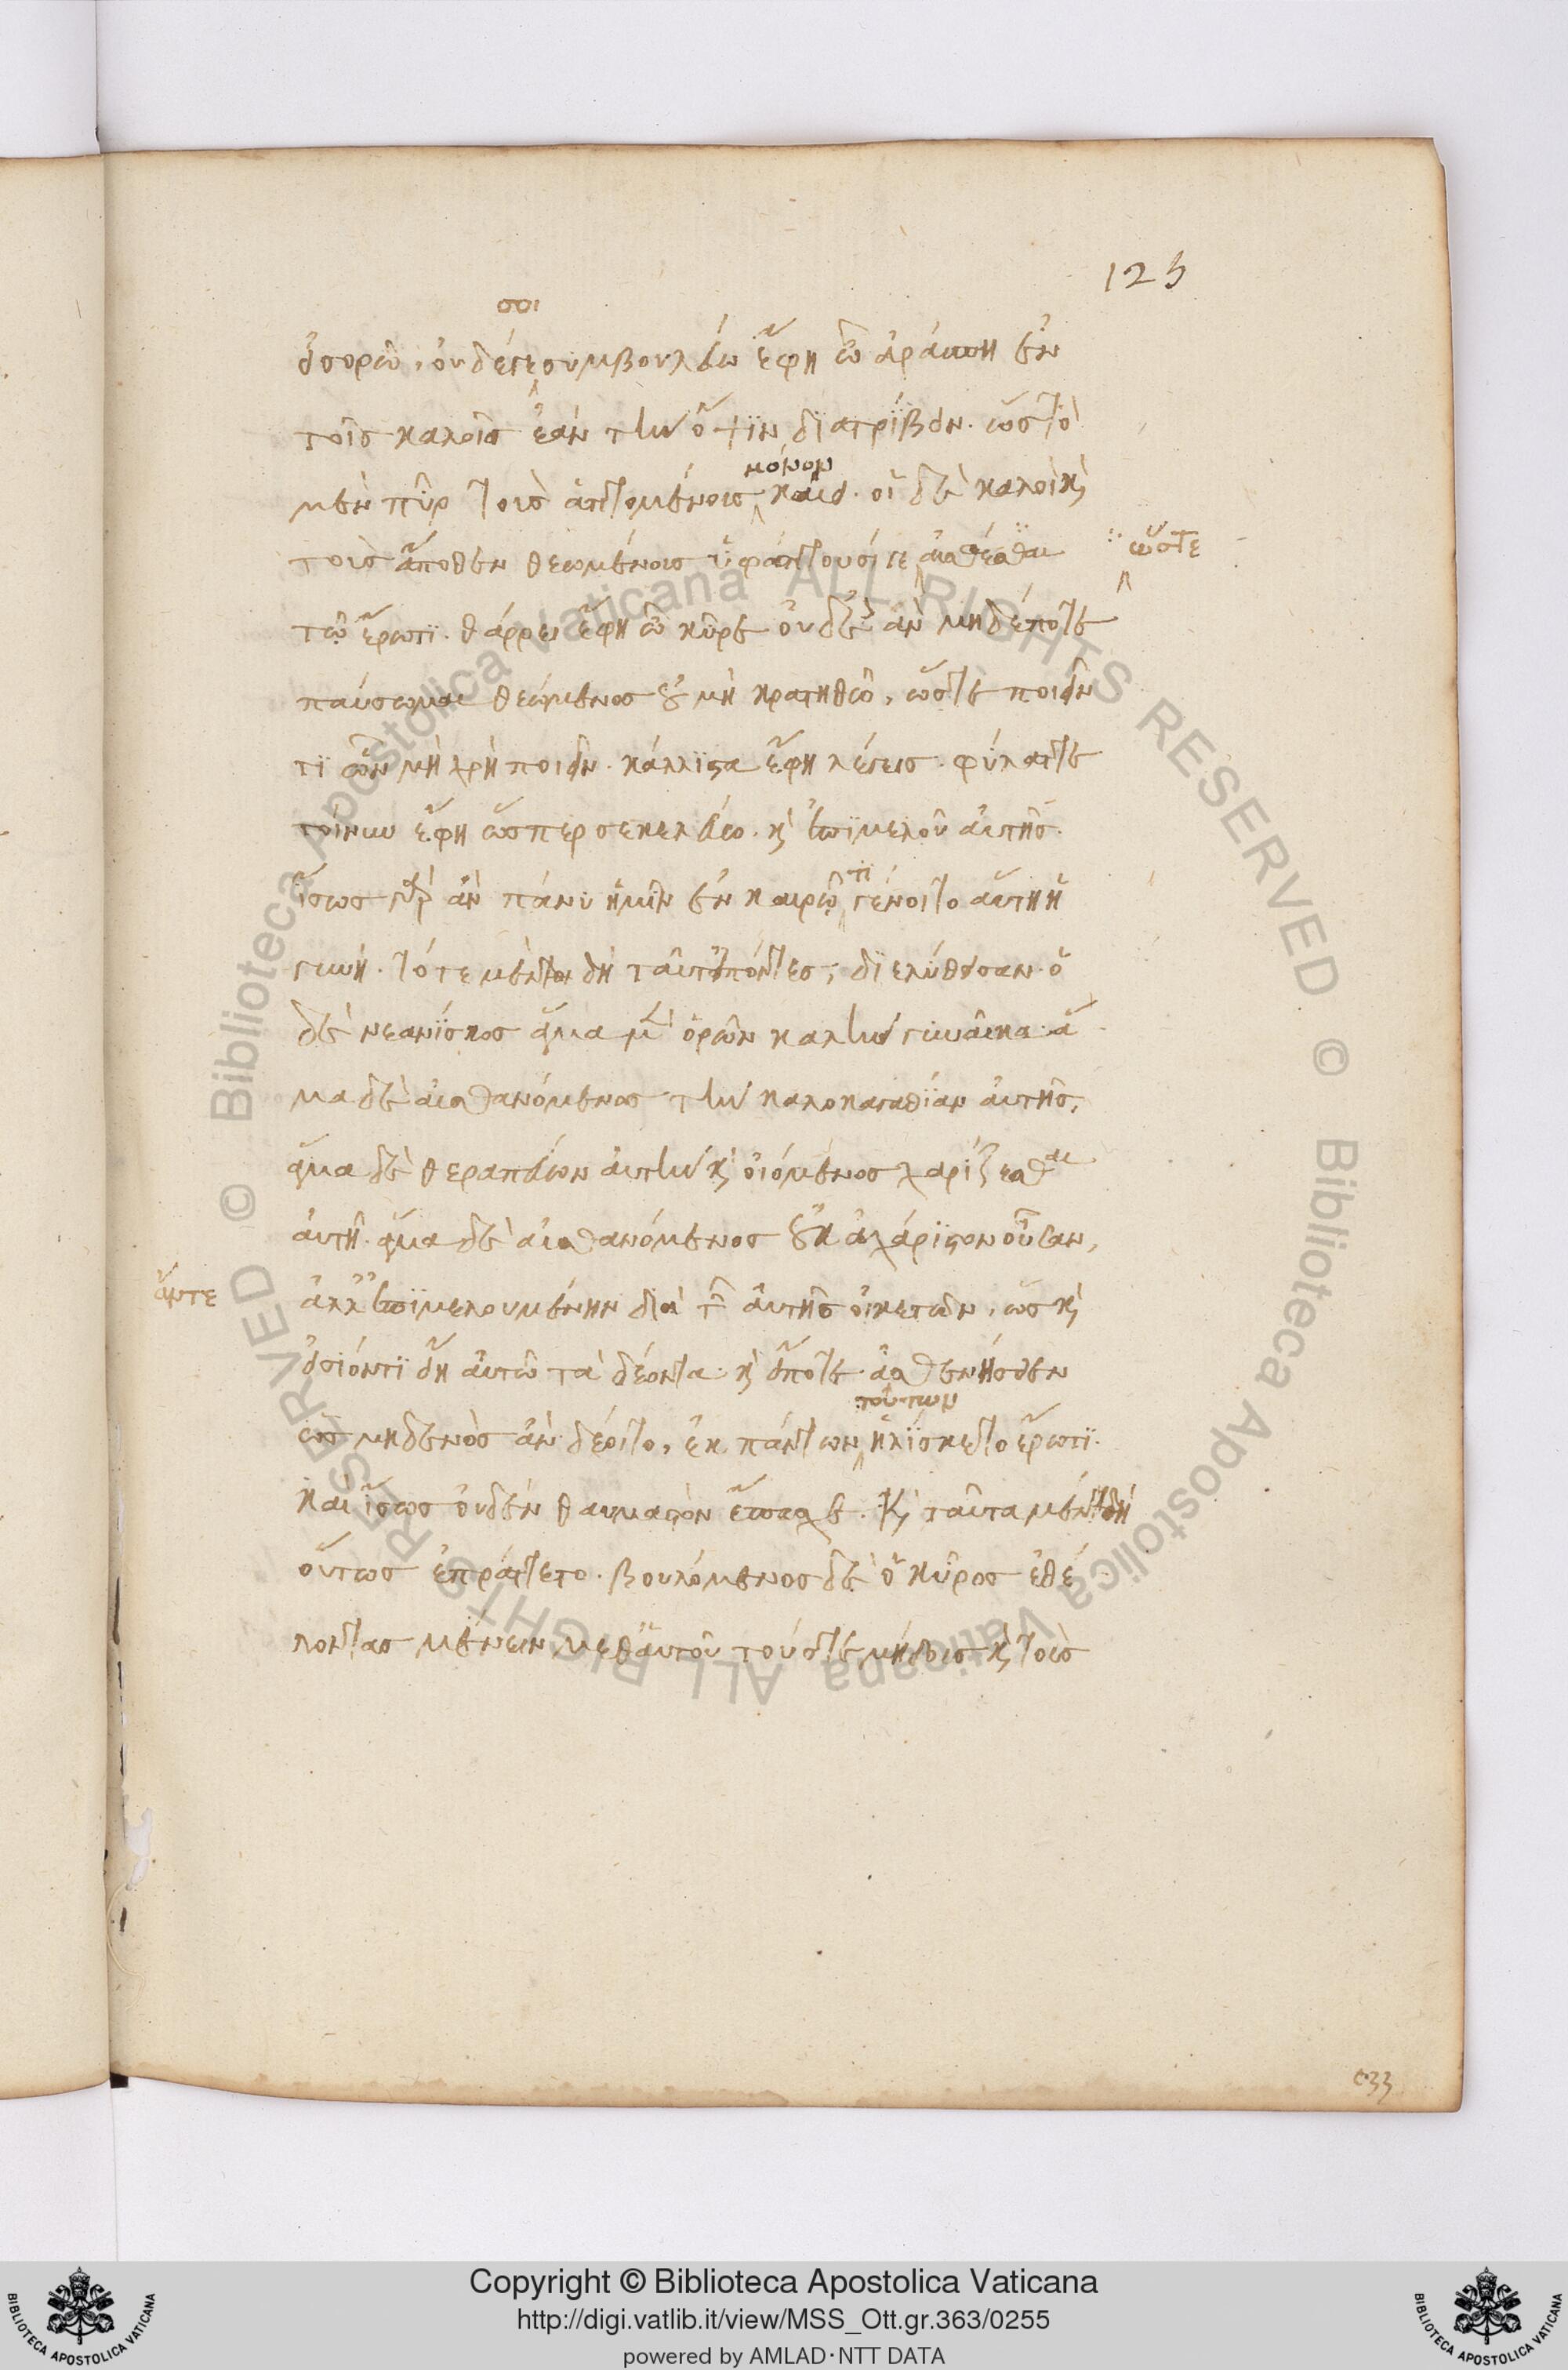 125
σοι
εἰσορῶ. οὐδέ γε συμβουλεύω ἔφη ὦ ἀράσπη ἐν
τοῖς καλοῖς ἐᾶν τὴν ὄψϊν δϊατρίβειν. ὡς τὸ
μόνον
μὲν πῦρ τοῖς ἁπτομένοις καίει. οἱ δὲ καλοὶ κὶ
τοὺς ἄποθεν θεωμένους ὑφάπτουσί γε αἴθεσθαι ὥστε
τῷ ἔρωτϊ. θάρρει ἔφη ὦ κῦρε οὐδ' ἐὰν μηδέποτε
παύσωμαι θεώμενος οὐ μὴ κρατηθῶ, ὥστε ποιεῖν
τϊ ὧν μὴ χρὴ ποιεῖν. κάλλϊστα ἔφη λέγεις. φύλαττε
τοίνυν ἔφη ὥσπερ σε κελεύω. κὶ ἐπϊμελοῦ αὐτῆς.
τϊ
ἴσως γὰρ ἂν πάνυ ἡμῖν ἐν καιρῷ γένοιτο αὕτη ἡ
γυνή. τότε μὲν δὴ ταῦτ' εἰπόντες, δϊελύθησαν. ὁ
δὲ νεανΐσκος ἅμα μὲν ὁρῶν καλὴν γυναῖκα. ἅ
μα δὲ αἰσθανόμενος τὴν καλοκαγαθΐαν αὐτῆς,
ἅμα δὲ θεραπεύων αὐτὴν κὶ οἰόμενος χαρίζεσθαι
αὐτῇ. ἅμα δὲ αἰσθανόμενος οὐκ ἀχάρϊστον οὖσαν,
ἀλλ' ἐπϊμελουμένην διὰ τῶν αὐτῆς οἰκετῶν, ὡς κὶ
εἰσϊόντϊ εἴη αὐτῷ τὰ δέοντα. κὶ εἴ ποτε ἀσθενήσειεν
τούτων
ὡς μηδενὸς ἂν δέοιτο, ἐκ πάντων ἡλΐσκετο ἔρωτϊ.
καὶ ἴσως οὐδὲν θαυμαστὸν ἔπασχε. Κὶ ταῦτα μὲν δὴ
οὕτως ἐπράττετο. βουλόμενος δὲ ὁ κῦρος ἐθέ
λοντας μένειν μεθ' αὑτοῦ τούς τε μήδους κὶ τοὺς
033
Copyright © Biblioteca Apostolica Vaticana
http://digi.vatlib.it/view/MSS_Ott.gr.363/0255
powered by AMLAD·NTT DATA